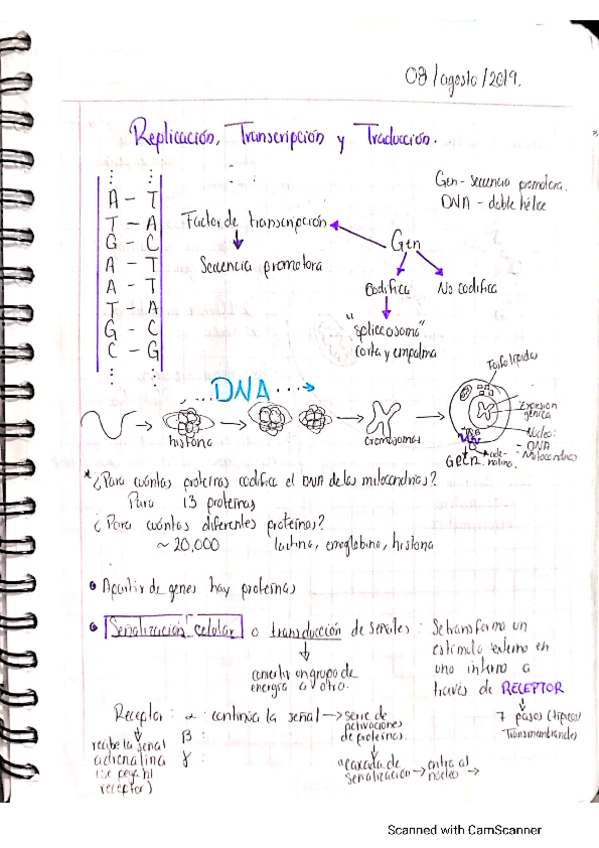 08/agosto/2019.
Replicación, Transcripción y Traducción.
Gen - secuencia promotora.
DNA - doble hélice
A - T
T - A
G - C
A - T
A - T
T - A
G - C
C - G
Factor de transcripción
Secuencia promotora
Gen
Codifica
No codifica
"spliceosoma"
corta y empalma
... DNA ...
histona
cromosomas
Fosfolípidos
Expresion
génica
Núcleo:
- DNA
- Mitocondrias
Gen
*¿Para cuántas proteínas codifica el DNA de las mitocondrias?
Para 13 proteínas
¿Para cuántas diferentes proteínas?
~ 20,000 lactina, emoglobina, histona
• Apartir de genes hay proteínas
• Señalización celular o transducción de señales: Se transforma un
estímulo externo en
uno interno a
través de RECEPTOR
convertir un grupo de
energía a otra.
7 pasos (típicas)
Transmembranales
Receptor: α: continúa la señal → serie de
activaciones
de proteínas.
β:
γ:
recibe la señal
adrenalina
(se pega al
receptor)
"cascada de
señalización → entra al
núcleo →
Scanned with CamScanner